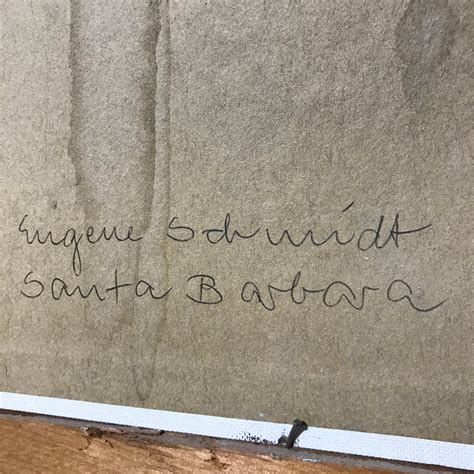 Eugene Schmidt
Santa Barbara